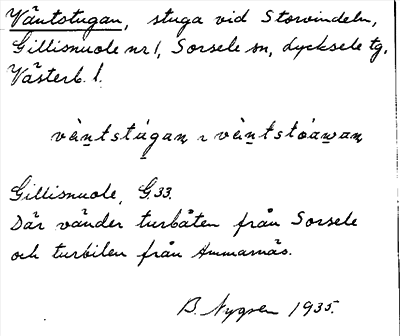 Väntstugan, stuga vid Storvindeln,
Gillisnuole nr 1, Sorsele sn, Lycksele tg,
Västerb. l.
Gillisnuole, G.33.
Där vänder turbåten från Sorsele
och turbilen från Ammarnäs.
B. 1935.